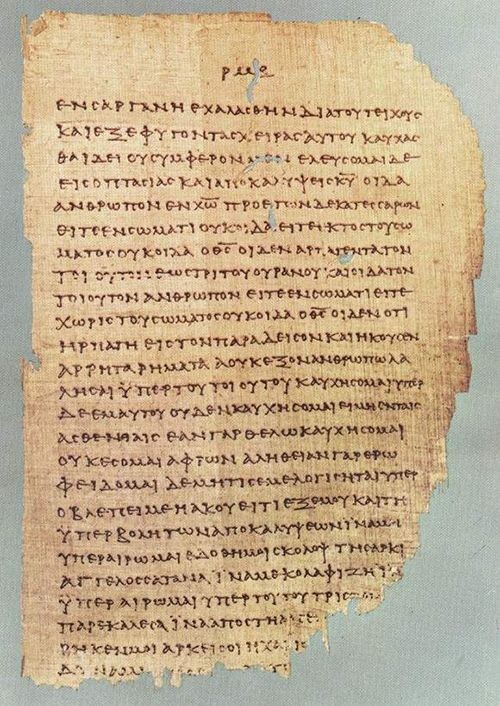 ΕΝ ΣΑΡΓΑΝΗ ΕΧΑΛΑΣΘΗΝ ΔΙΑ ΤΟΥ ΤΕΙΧΟΥΣ
ΚΑΙ ΕΞΕΦΥΓΟΝ ΤΑΣ ΧΕΙΡΑΣ ΑΥΤΟΥ ΚΑΥΧΑΣ
ΘΑΙ ΔΕΙ ΟΥ ΣΥΜΦΕΡΟΝ ΕΛΕΥΣΟΜΑΙ ΔΕ
ΕΙΣ ΟΠΤΑΣΙΑΣ ΚΑΙ ΑΠΟΚΑΛΥΨΕΙΣ Κ̅Υ̅ ΟΙΔΑ
ΑΝΘΡΩΠΟΝ ΕΝ Χ̅Ω̅ ΠΡΟ ΕΤΩΝ ΔΕΚΑΤΕΣΣΑΡΩΝ
ΕΙΤΕ ΕΝ ΣΩΜΑΤΙ ΟΥΚ ΟΙΔΑ ΕΙΤΕ ΕΚΤΟΣ ΤΟΥ ΣΩ
ΜΑΤΟΣ ΟΥΚ ΟΙΔΑ Ο Θ̅Σ̅ ΟΙΔΕΝ ΑΡΠΑΓΕΝΤΑ ΤΟΝ
ΤΟΙΟΥΤΟΝ ΕΩΣ ΤΡΙΤΟΥ ΟΥΡΑΝΟΥ ΚΑΙ ΟΙΔΑ ΤΟΝ
ΤΟΙΟΥΤΟΝ ΑΝΘΡΩΠΟΝ ΕΙΤΕ ΕΝ ΣΩΜΑΤΙ ΕΙΤΕ
ΧΩΡΙΣ ΤΟΥ ΣΩΜΑΤΟΣ ΟΥΚ ΟΙΔΑ Ο Θ̅Σ̅ ΟΙΔΕΝ ΟΤΙ
ΗΡΠΑΓΗ ΕΙΣ ΤΟΝ ΠΑΡΑΔΕΙΣΟΝ ΚΑΙ ΗΚΟΥΣΕΝ
ΑΡΡΗΤΑ ΡΗΜΑΤΑ Α ΟΥΚ ΕΞΟΝ ΑΝΘΡΩΠΩ ΛΑ
ΛΗΣΑΙ ΫΠΕΡ ΤΟΥ ΤΟΙΟΥΤΟΥ ΚΑΥΧΗΣΟΜΑΙ ΥΠΕΡ
ΔΕ ΕΜΑΥΤΟΥ ΟΥΔΕΝ ΚΑΥΧΗΣΟΜΑΙ ΕΙ ΜΗ ΕΝ ΤΑΙΣ
ΑΣΘΕΝΕΙΑΙΣ ΕΑΝ ΓΑΡ ΘΕΛΩ ΚΑΥΧΗΣΟΜΑΙ
ΟΥΚ ΕΣΟΜΑΙ ΑΦΡΩΝ ΑΛΗΘΕΙΑΝ ΓΑΡ ΕΡΩ
ΦΕΙΔΟΜΑΙ ΔΕ ΜΗ ΤΙΣ ΕΜΕ ΛΟΓΙΣΗΤΑΙ ΥΠΕΡ
Ο ΒΛΕΠΕΙ ΜΕ Η ΑΚΟΥΕΙ ΤΙ ΕΞ ΕΜΟΥ ΚΑΙ ΤΗ
ΫΠΕΡΒΟΛΗ ΤΩΝ ΑΠΟΚΑΛΥΨΕΩΝ ΪΝΑ ΜΗ
ΥΠΕΡΑΙΡΩΜΑΙ ΕΔΟΘΗ ΜΟΙ ΣΚΟΛΟΨ ΤΗ ΣΑΡΚΙ
ΑΓΓΕΛΟΣ ΣΑΤΑΝΑ ΪΝΑ ΜΕ ΚΟΛΑΦΙΖΗ ΪΝΑ
ΫΠΕΡΑΙΡΩΜΑΙ ΥΠΕΡ ΤΟΥΤΟΥ ΤΡΙΣ
ΠΑΡΕΚΑΛΕΣΑ ΪΝΑ ΑΠΟΣΤΗ
ΡΗΚΕΝ ΜΟΙ ΑΡΚΕΙ ΣΟΙ Η ΧΑΡΙΣ